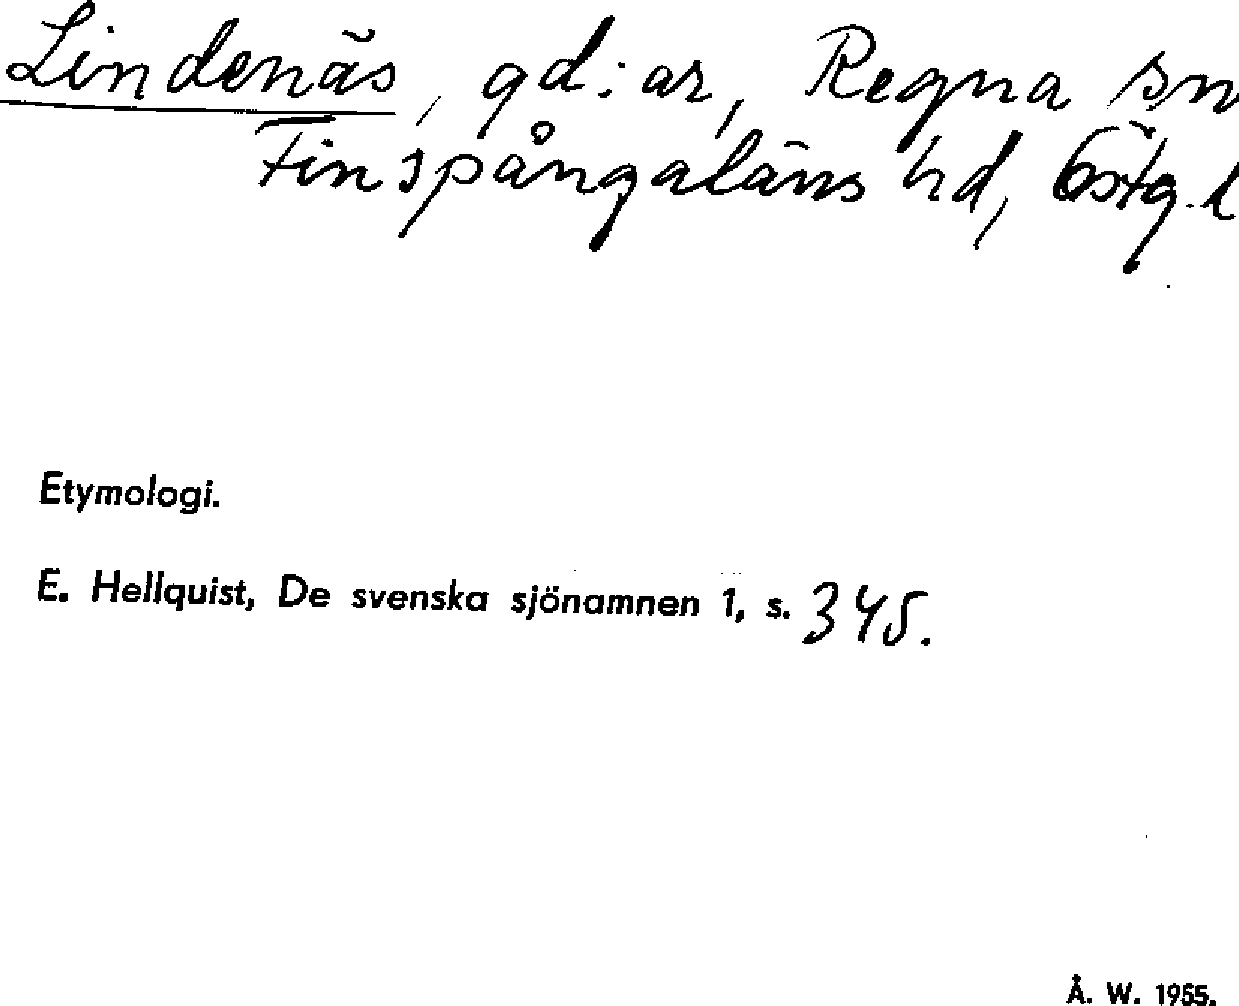 Lindenäs, gd:ar, Regna sn
Finspångaläns hd, Östg.l
Etymologi.
E. Hellquist, De svenska sjönamnen 1, s. 345.
Å. W. 1955.